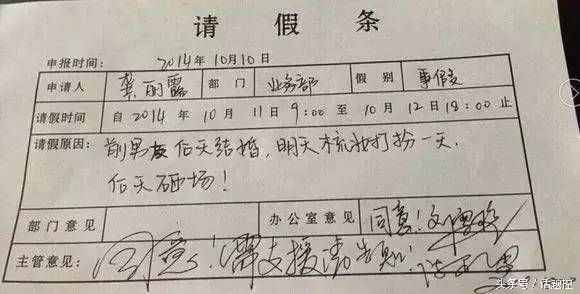 请假条
申报时间： 2014年10月10日
申请人 龚丽露 部门 业务部 假别 事假
请假时间 自2014年10月11日9:00至10月12日18:00止
请假原因： 前男友后天结婚，明天梳妆打扮一天，
后天砸场！
部门意见 办公室意见 同意！
主管意见： 同意！需支援请告知！
头条号／话题图